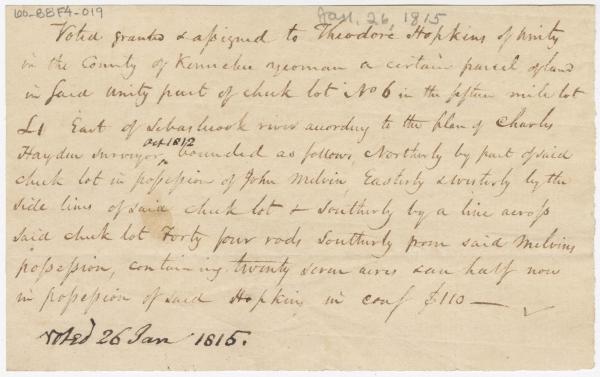 100-BBF4-019
Jan. 26, 1815
Voted granted & assigned to Theodore Hopkins of Unity
in the County of Kennebec yeoman a certain parcel of land
in said Unity part of check lot No 6 in the fifteen mile lot
L1 East of Sebasticook river according to the plan of Charles
Oct 1812
Hayden surveyor, bounded as follows, Northerly by part of said
check lot in possession of John Melvin Easterly & westerly by the
side lines of said check lot & Southerly by a line across
said check lot Forty four rods Southerly from said Melvins
possession, containing twenty seven acres & an half now
in possession of said Hopkins in conf $110 —
Voted 26 Jan 1815.